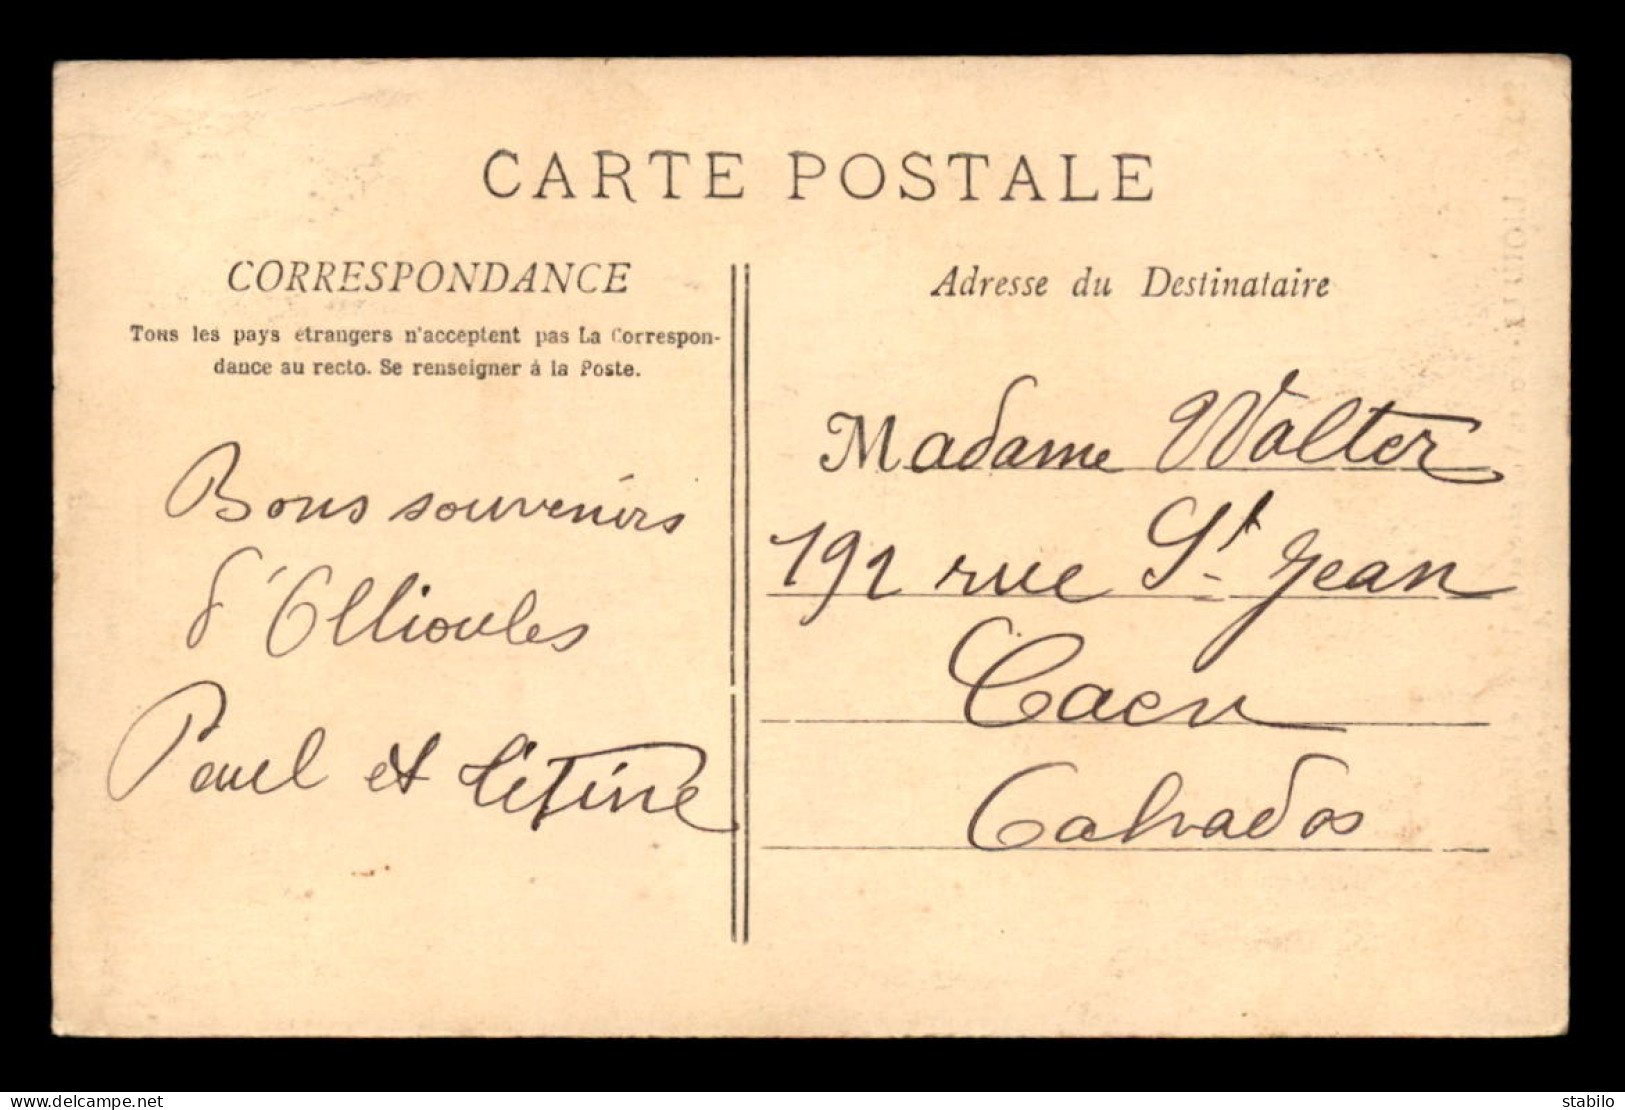 CARTE POSTALE
CORRESPONDANCE
Tous les pays étrangers n'acceptent pas La Correspon-
dance au recto. Se renseigner à la Poste.
Bons souvenirs
d'Ollioules
Paul et
Adresse du Destinataire
Madame Walter
191 rue St Jean
Caen
Calvados
www.delcampe.net
stabilo